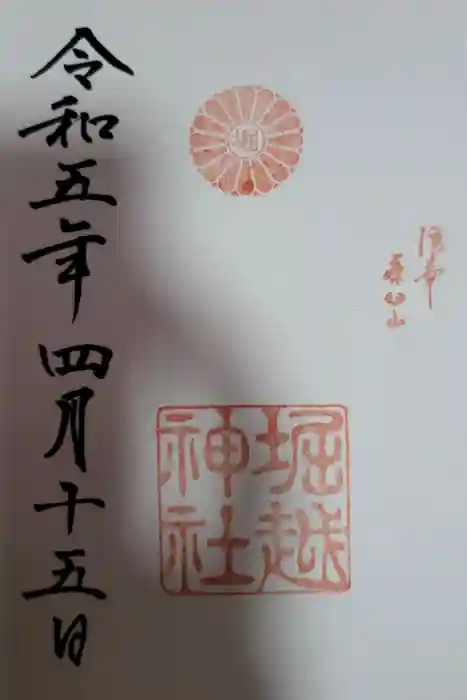 堀
堀越
神社
令和五年四月十五日